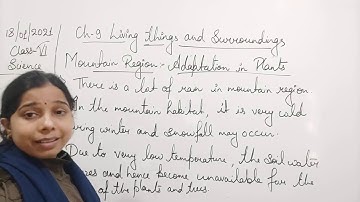 18/01/2021
Class-VI
Science
Ch-9 Living things and Surroundings
Mountain Region:- Adaptation in Plants
There is a lot of rain in mountain region.
In the mountain habitat, it is very cold
during winter and snowfall may occur.
Due to very low temperature, the soil water
and hence become unavailable for the
of the plants and trees.